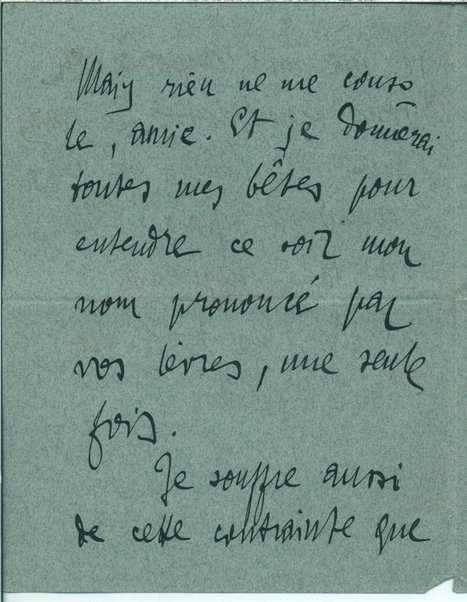 Mais rien ne me conso
le, amie. Et je donnerai
toutes mes bêtes pour
entendre ce soir mon
nom prononcé par
vos lèvres, une seule
fois.
Je souffre aussi
de cette contrainte que